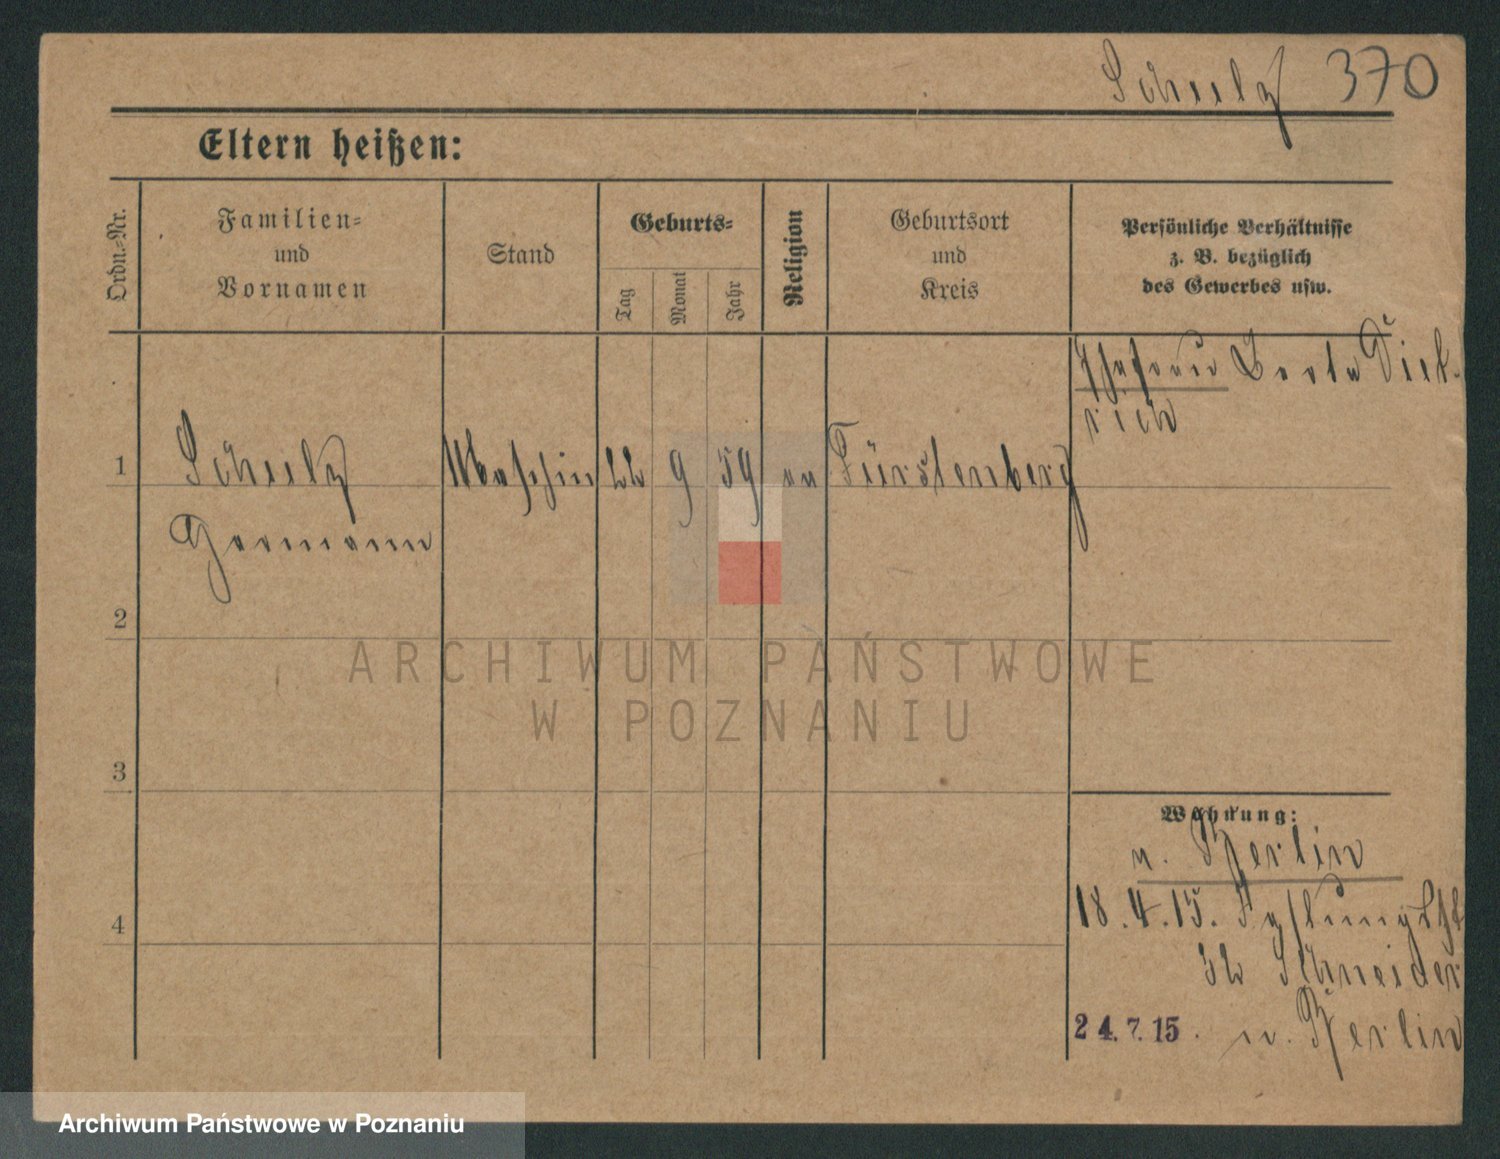 Schulz 370
Eltern heißen:
Ordn.-Nr.
Familien-
und
Vornamen
Stand
Geburts-
Tag
Monat
Jahr
Religion
Geburtsort
und
Kreis
Persönliche Verhältnisse
z. B. bezüglich
des Gewerbes usw.
Ehefrau Berta Diet-
rich
1 Schulz Maschin 22 9 59 ev Fürstenberg
Hermann
2
3
4
Wohnung:
n. Berlin
18.4.15.
32 Schneider
24.7.15. n. Berlin
ARCHIWUM PAŃSTWOWE
W POZNANIU
Archiwum Państwowe w Poznaniu